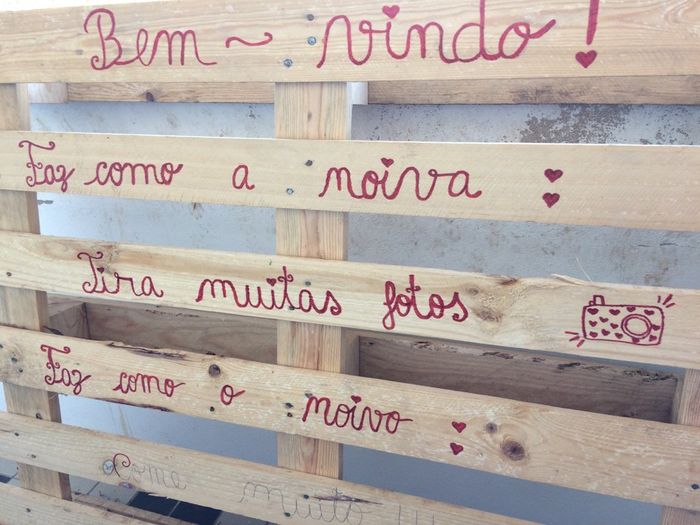 Bem ~ vindo!
Faz como a noiva :
Tira muitas fotos
Faz como o noivo :
Come muito !!